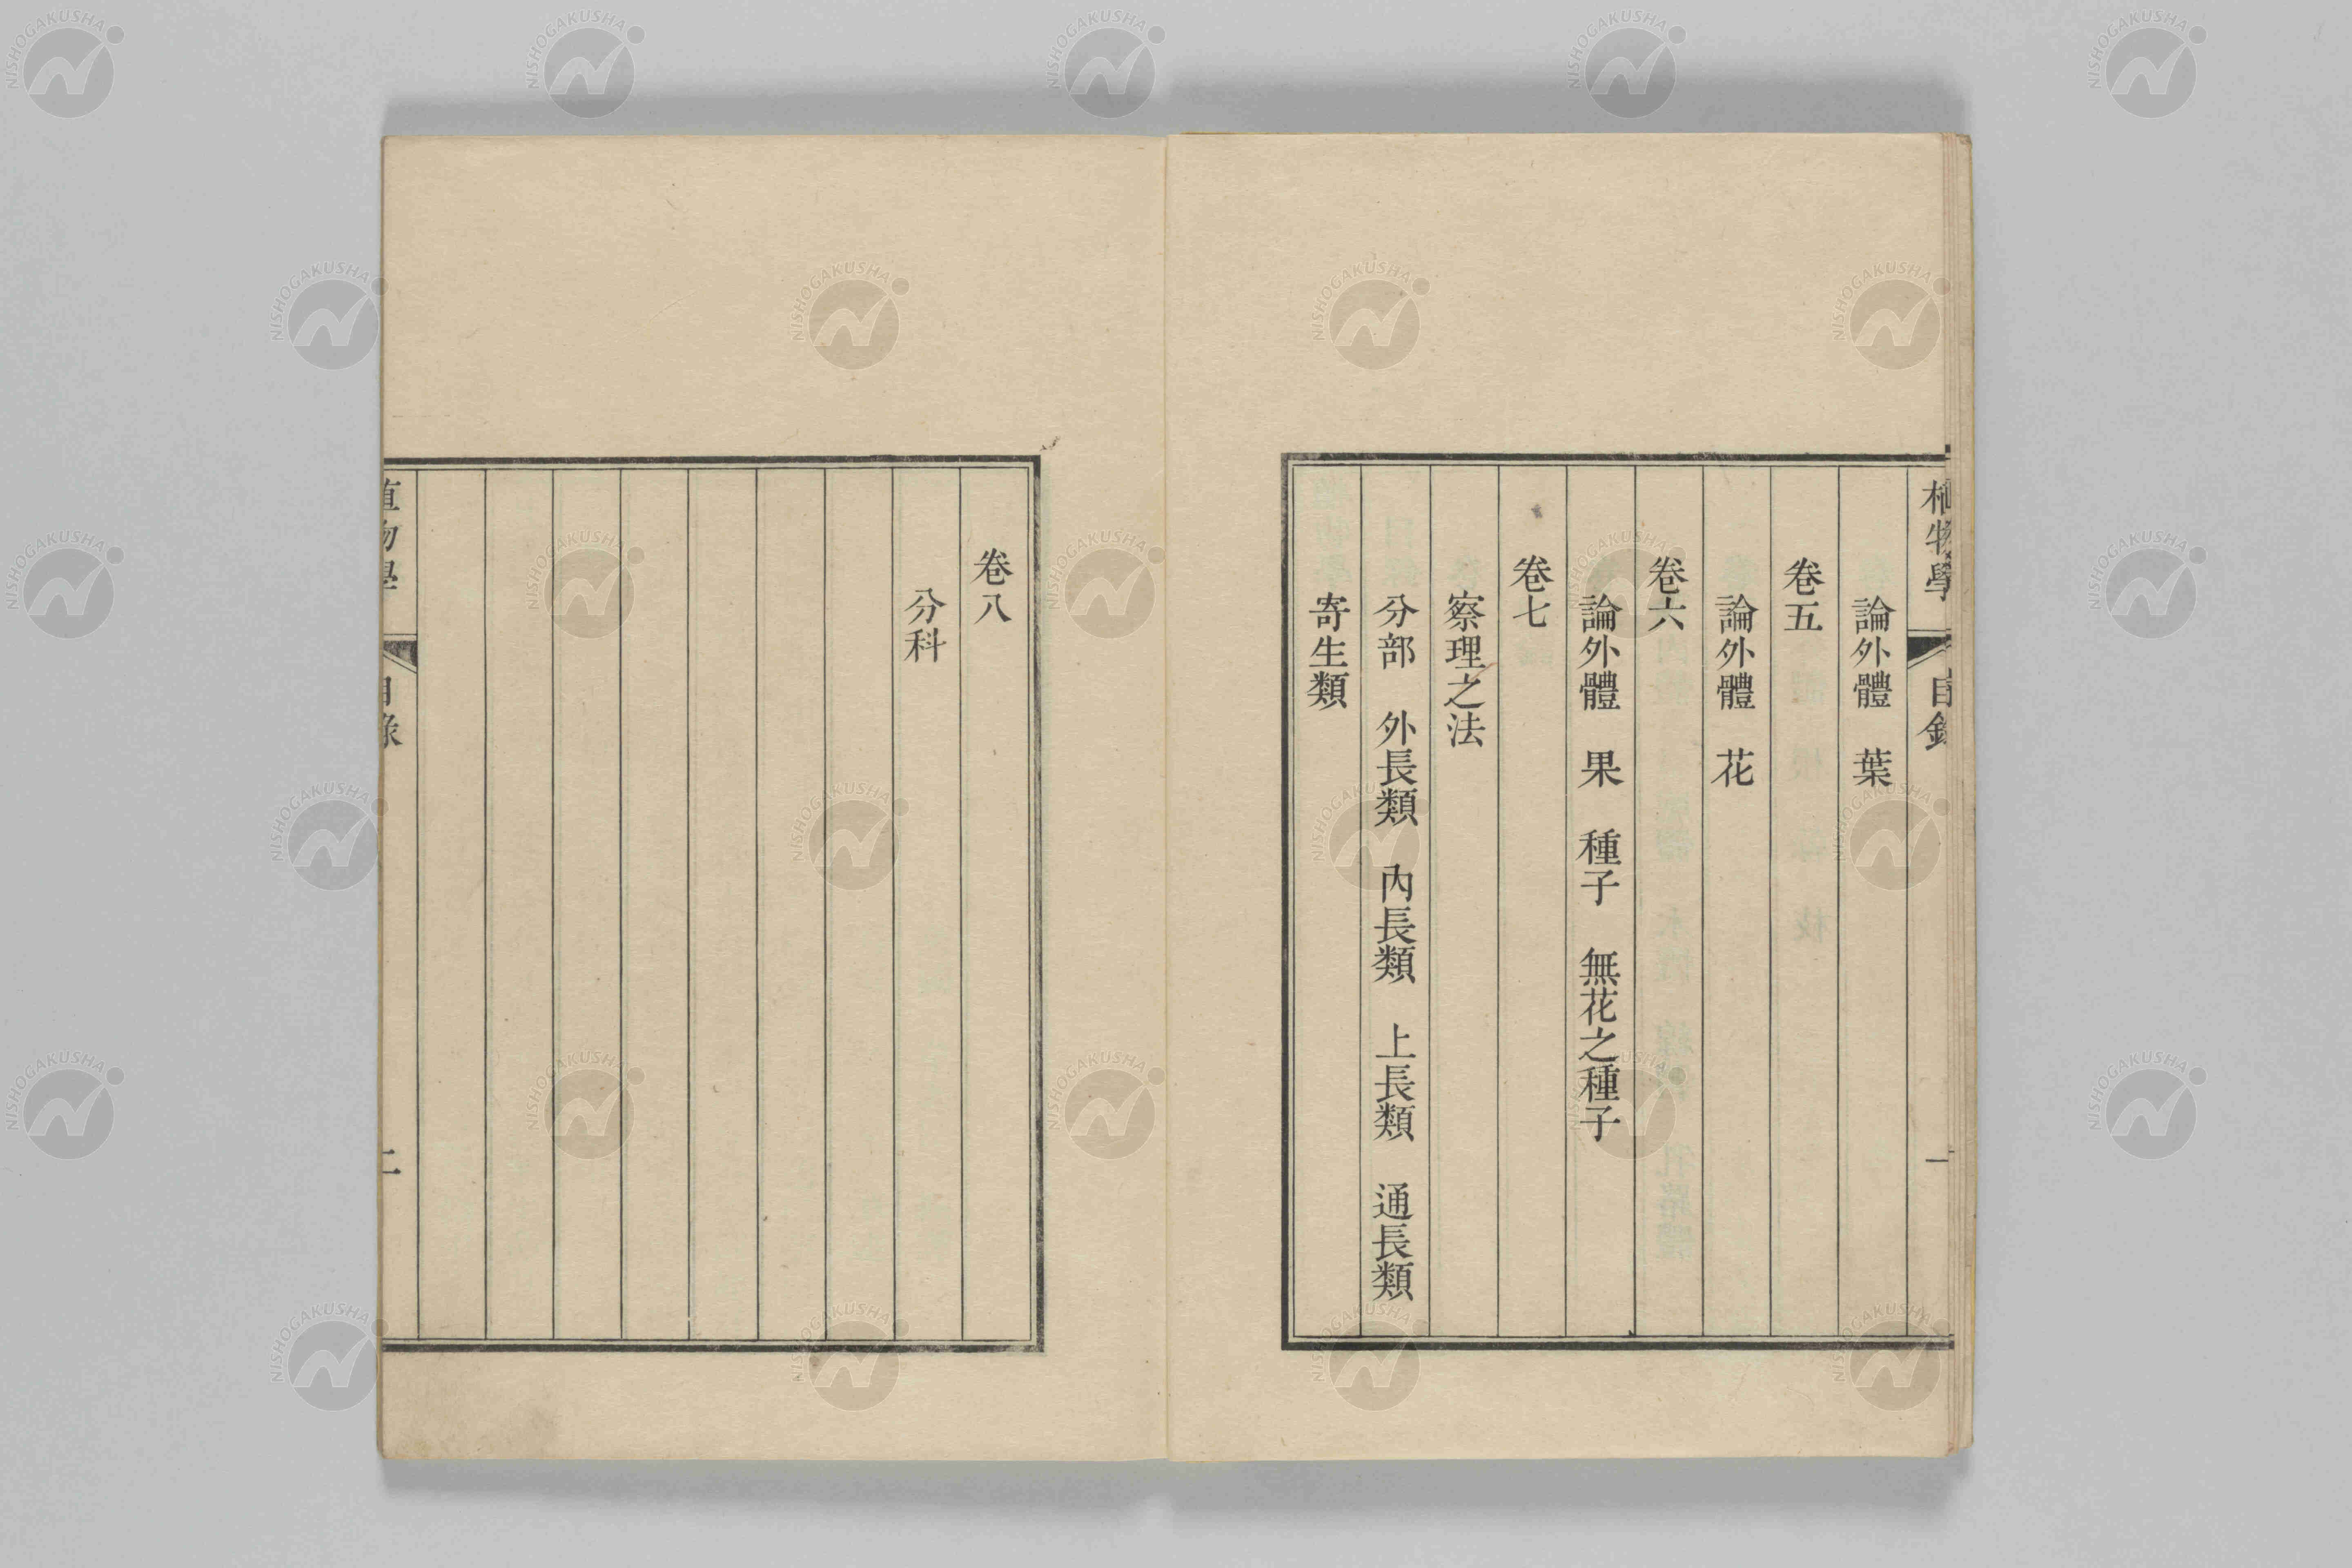 植物學 目錄 一
論外體 葉
卷五
論外體 花
卷六
論外體 果 種子 無花之種子
卷七
察理之法
分部 外長類 內長類 上長類 通長類
寄生類
卷八
分科
植物學 目錄 二
NISHOGAKUSHA